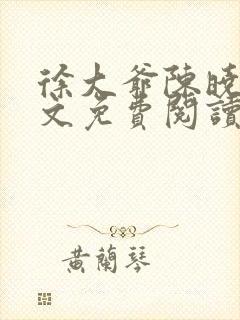 徐大爺陳曉
文免費閱讀
黃蘭琴